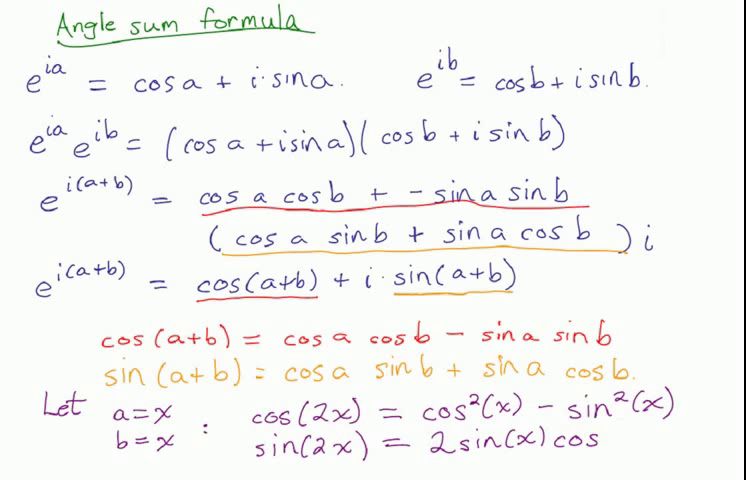 Angle sum formula
e^{ia} = cos a + i · sin a. e^{ib} = cos b + i sin b.
e^{ia} e^{ib} = (cos a + i sin a)(cos b + i sin b)
e^{i(a+b)} = cos a cos b + - sin a sin b
(cos a sin b + sin a cos b) i
e^{i(a+b)} = cos(a+b) + i · sin(a+b)
cos(a+b) = cos a cos b - sin a sin b
sin(a+b) = cos a sin b + sin a cos b.
Let a=x : cos(2x) = cos²(x) - sin²(x)
b=x sin(2x) = 2 sin(x) cos